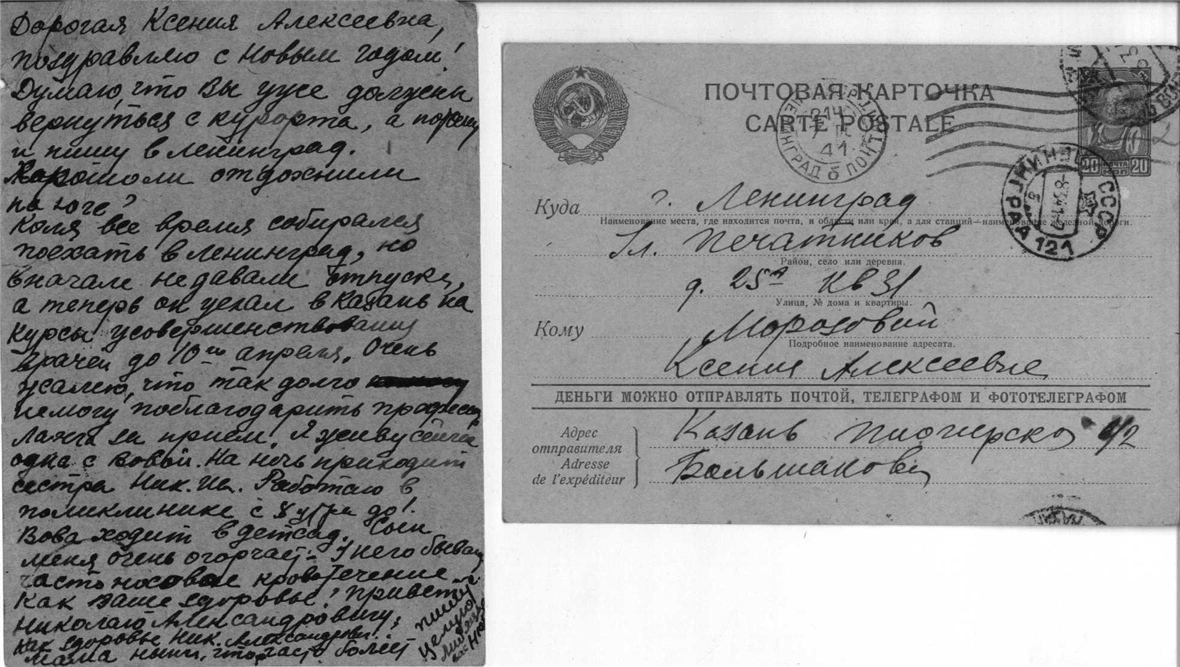 Дорогая Ксения Алексеевна,
поздравляю с Новым годом!
Думаю, что Вы уже должны
вернуться с курорта, а потому
и пишу в Ленинград.
Хорошо ли отдохнули
на юге?
Коля все время собирался
поехать в Ленинград, но
вначале не давали отпуска,
а теперь он уехал в Казань на
курсы усовершенствования
врачей до 10го апреля. Очень
жалею, что так долго
немогу поблагодарить
за прием. Я живу сейчас
одна с Вовой. На ночь приходит
сестра Ник. Ив. Работаю в
поликлинике с 8 утра до 1.
Вова ходит в детсад. Сын
меня очень огорчает – У него бывают
часто носовое кровотечение
Как Ваше здоровье? Привет
Николаю Александровичу;
Как здоровье Ник. Александров.?
мама пишет, что часто болеет
пишите
Целую
ПОЧТОВАЯ КАРТОЧКА
CARTE POSTALE
ЛЕНИНГРАД 6 ПОЧТАМТ
41
СССР
ЛЕНИНГРАД
121
20 ПОЧТА 20
Куда г. Ленинград
Наименование места, где находится почта, и области или края, а для станций—наименование железной дороги.
Ул. Печатников
Район, село или деревня.
д. 25а кв 31
Улица, № дома и квартиры.
Кому Морозовой
Подробное наименование адресата.
Ксении Алексеевне
ДЕНЬГИ МОЖНО ОТПРАВЛЯТЬ ПОЧТОЙ, ТЕЛЕГРАФОМ И ФОТОТЕЛЕГРАФОМ
Адрес
отправителя
Adresse
de l'expéditeur
Казань Пионерская
Большакова